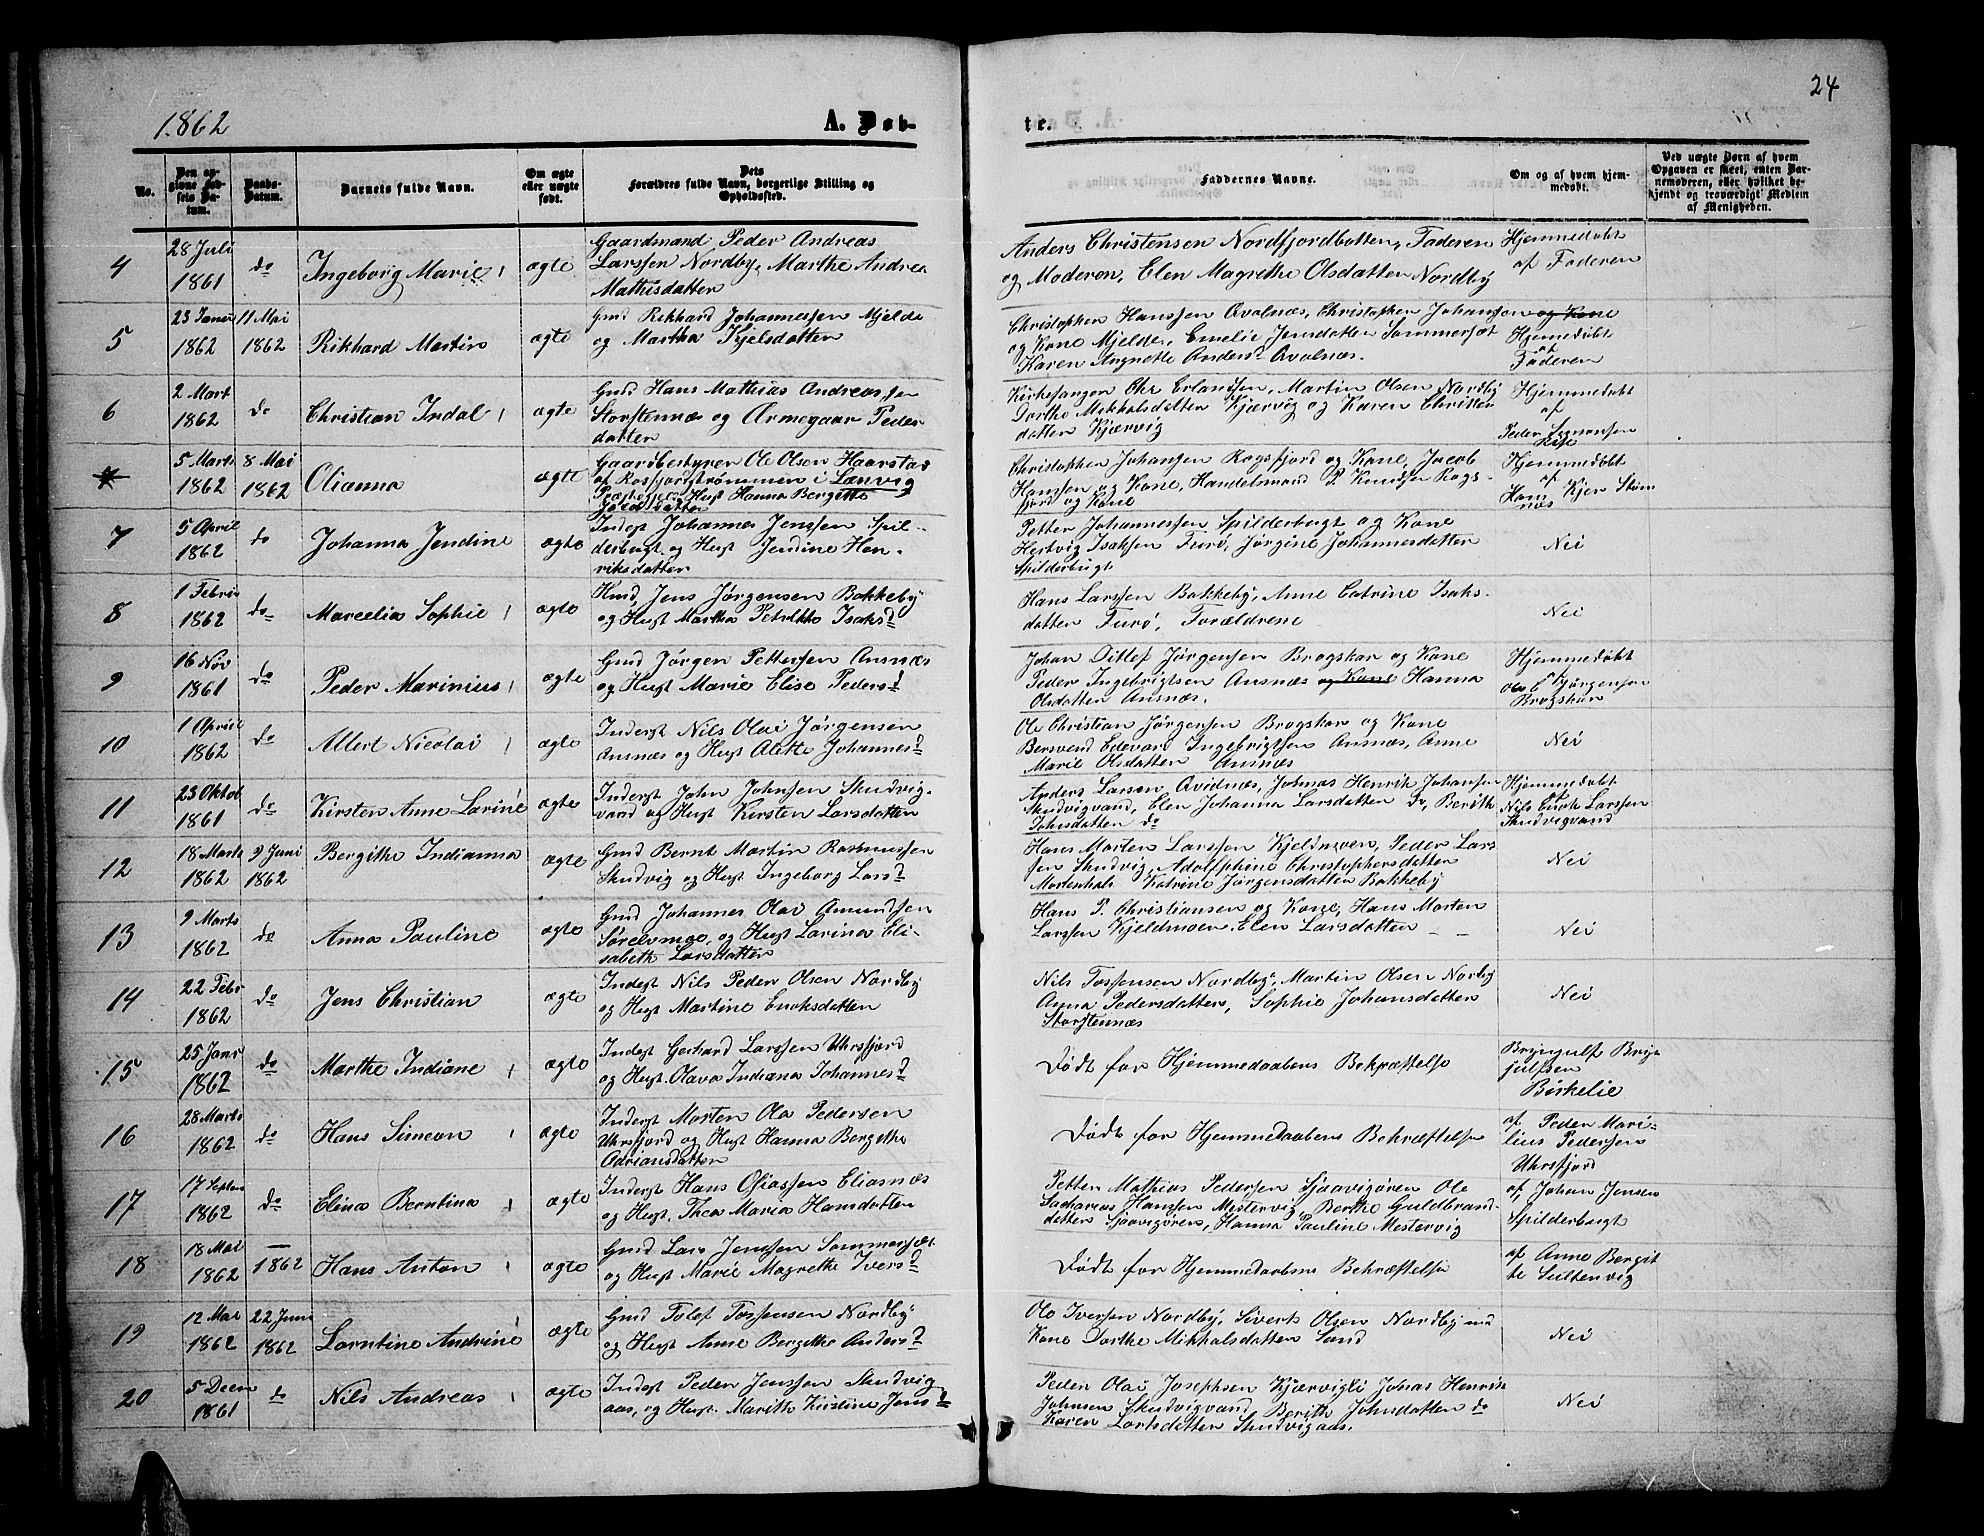 24
1862
A. Døb-
te.
No.
Den an-
givne Fød-
sels Da-
tum.
Daabs-
Datum.
Barnets fulde Navn.
Om ægte
eller uægte
født.
Dets
Forældres fulde Navn, borgerlige Stilling og
Opholdssted.
Faddernes Navne.
Om og af hvem hjem-
medøbt.
Ved uægte Børn af hvem
Opgaven er skeet, enten Bar-
nemoderen, eller hvilket be-
kjendt og troværdigt Medlem
af Menigheden.
4
28 Juli
1861
do
Ingeborg Marie
ægte
Gaardmand Peder Andreas
Larssen Nordby, Marthe Andrea
Mathisdatter
Anders Christensen Nordfjordbotten, Faderen
og Moderen, Elen Magrethe Olsdatter Nordby
Hjemmedøbt
af Faderen
5
23 Januar
1862
11 Mai
1862
Rikhard Martin
ægte
Gmd Rikhard Johannessen Mjelde
og Martha Kjelsdatter
Christopher Hanssen Avalnæs, Christopher Johansen og Kone
og Kone Mjelde, Emelie Jensdatter Sommersæt
Karen Angnette Andersd Avalnæs.
Hjemmedøbt
af
Faderen
6
2 Mart
1862
do
Christian Indal
ægte
Gmd Hans Mathias Andreassen
Storstennæs og Armegaar Peder
datter
Kirkesanger Chr Erlandsen, Martin Olsen Nordby
Dorthe Mikkalsdatter Kjærvig og Karen Christen
datter Kjærvig
Hjemmedøbt
af
Peder Simonsen
5 Marts
1862
8 Mai
1862
Olianna
ægte
Gaardbestyrer Ole Olsen Haarstad
af Rosfjordstrømmen i Lenvig
Præstegj og Hust Hanna Bergitte
Jacobsdatter
Christopher Johansen Rogsfjord og Kone, Jacob
Hanssen og Kone, Handelsmand P. Knudsen Rogs-
fjord og Kone
Hjemmedøbt
af
Hans Kjer Strøm
næs
7
5 April
1862
do
Johanna Jendine
ægte
Inderst Johannes Jenssen Spil-
derbugt og Hust Jendine Hen-
riksdatter
Petter Johannessen Spilderbugt og Kone
Hertvig Isaksen Furø, Jørgine Johannesdatter
Spilderbugt
Nei
8
1 Febris
1862
do
Marcelia Sophie
ægte
Hmd, Jens Jørgensen Bakkeby
og Hust Martha Petrikke Isaksd
Hans Larssen Bakkeby, Anne Catrine Isaks-
datter Furø, Forældrene
Nei
9
16 Nov
1861
do
Peder Marinius
ægte
Gmd Jørgen Pettersen Ansnæs
og Hust Marie Elise Pedersd
Johan Ditlef Jørgensen Brogskar og Kone
Peder Ingebrigtsen Ansnæs og Kone Hanna
Olsdatter Ansnæs.
Hjemmedøbt
af
Ole C Jørgensen
Brogskar
10
1 April
1862
do
Albert Nicolai
ægte
Inderst Nils Olai Jørgensen
Ansnæs og Hust Alette Johannesd
Ole Christian Jørgensen Brogskar og Kone
Bersvend Edevard Ingebrigtsen Ansnæs, Anne
Marie Olsdatter Ansnæs
Nei
11
23 Oktob
1861
do
Kirsten Anne Larine
ægte
Inderst John Johnsen Skudvig-
vand og Hust Kirsten Larsdatter
Anders Larsen Qvidnæs, Johnas Henrik Johansen
Skudvigvand, Elen Johanna Larsdatter do, Berith
Johnsdatter do
Hjemmedøbt
af
Nils Enok Larssen
Skudvigvand
12
18 Marts
1862
9 Juni
1862
Bergithe Indianna
ægte
Gmd Bernt Martin Rasmussen
Skudvig og Hust Ingeborg Larsd
Hans Morten Larssen Kjeldmoen, Peder Lars
sen Skudvig, Adolphine Christophersdatter
Mortenhals Katrine Jørgensdatter Bakkeby
Nei
13
9 Marts
1862
do
Anna Pauline
ægte
Gmd Johannes Olai Amundsen
Sørelvmoe, og Hust Larina Eli-
sabeth Larsdatter
Hans P. Christiansen og Kone, Hans Morten
Larssen Kjeldmoen, Elen Larsdatter - -
Nei
14
22 Febr
1862
do
Jens Christian
ægte
Inderst Nils Peder Olsen Nordby
og Hust Martine Enoksdatter
Nils Tossensen Nordby, Martin Olsen Norby
Anna Pedersdatter, Sophie Johansdatter
Storstennæs
Nei
15
25 Janr
1862
do
Marthe Indiane
ægte
Inderst Gerhard Larssen Uhrsfjord
og Hust. Olava Indiana Johannesd
Dødt før Hjemmedaabens Bekræftelse
Bryngulf Bryn
julfsen
Birkelie
16
28 Marts
1862
do
Hans Simeon
ægte
Inderst Morten Ola Pedersen
Uhrsfjord og Hust Hanna Bergithe
Adriansdatter
Dødt før Hjemmedaabens Bekræftelse
af Peder Mari-
lius Pedersen
Uhrsfjord
17
17 Septem
1862
do
Elina Berntina
ægte
Inderst Hans Osiassen Eliasnæs
og Hust, Thea Maria Hansdatter
Petter Mathias Pedersen Sjaavigøren Ole
Sacharias Hanssen Mestervig, Berthe Guldbrand-
datter Sjaavigøren, Hanna Pauline Mestervig
af, Johan Jensen
Spilderbugt
18
18 Mai
1862
—
1862
Hans Anton
ægte
Gmd Lars Jenssen Sommersæt
og Hust Marie Magrethe Iversd
Dødt før Hjemmedaabens Bekræftelse
af Anne Bergit
te Sultenvig
19
12 Mai
1862
22 Juni
1862
Lorntine Andrine
ægte
Gmd Tolef Tossensen Nordby
og Hust Anne Bergithe Andersd
Ole Iversen Nordby, Siverts Olsen Nordby med
Kone Dorthe Mikkalsdatter Sand
Nei
20
5 Decem
1861
do
Nils Andreas
ægte
Inderst Peder Jenssen Skudvig
aas, og Hust. Marith Kirstine Jensd
Peder Olai Josephsen Kjærvigli Johnas Henrik
Johnsen Skudvigvand, Berith Johnsdatter do
Karen Larsdatter Skudvigaas.
Nei